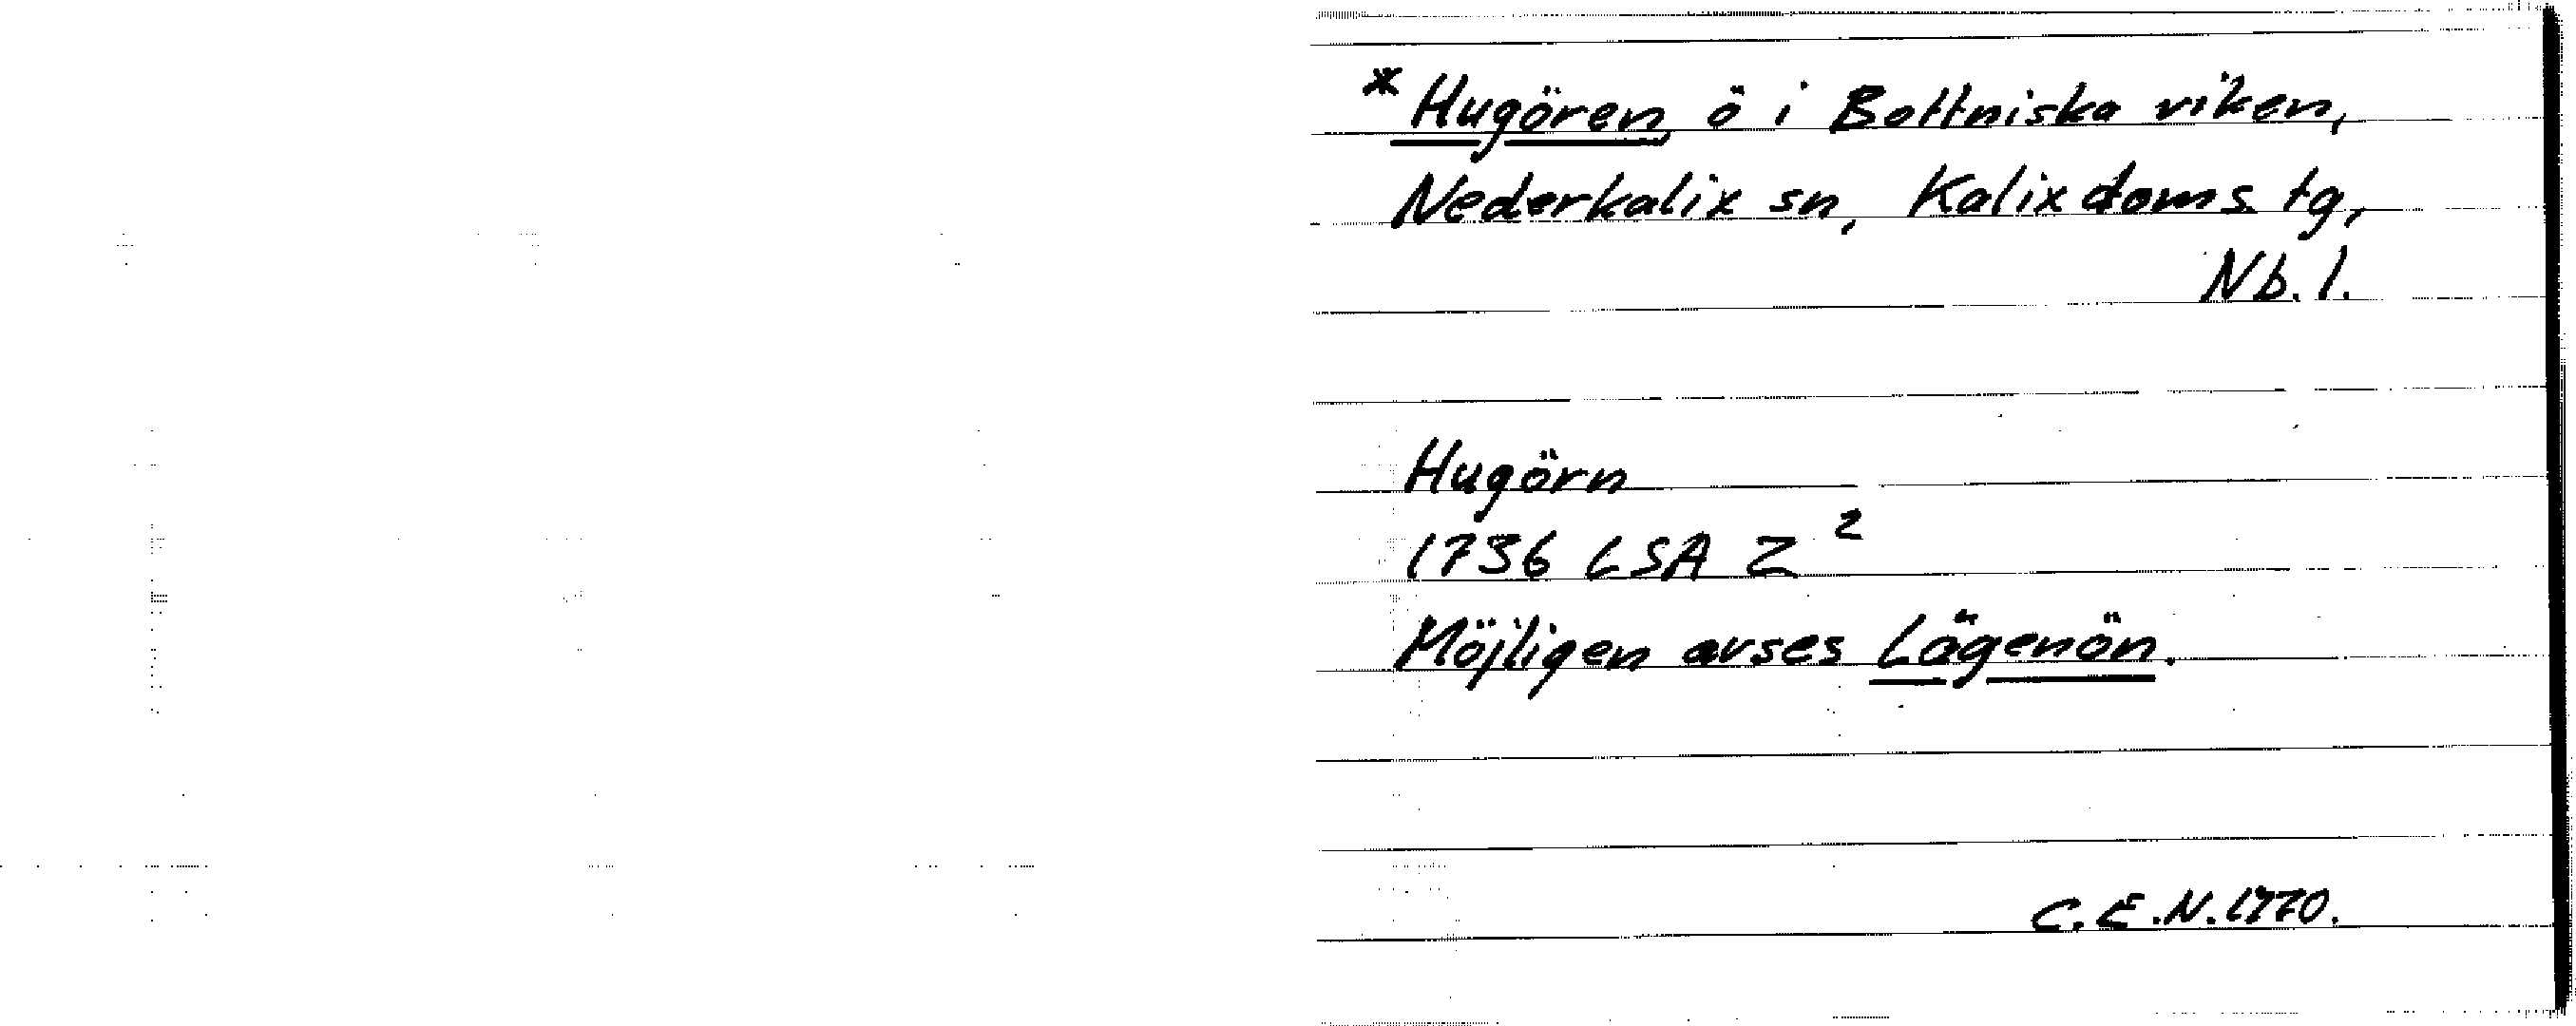 *Hugören, ö i Bottniska viken,
Nederkalix sn, Kalix doms. tg,
Nb. l.
Hugörn
1736 LSA Z 2
Möjligen avses Lägenön.
C.E.N. 1970.